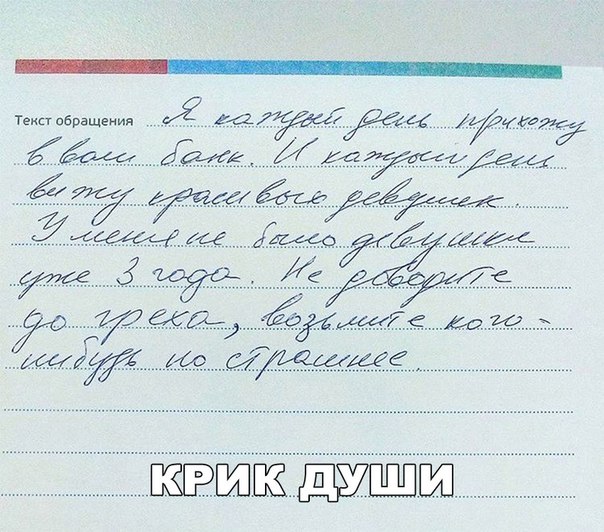 Текст обращения Я каждый день прихожу
в ваш банк. И каждый день
вижу красивых девушек.
У меня не было девушки
уже 3 года. Не доводите
до греха, возьмите кого-
нибудь по страшнее.
КРИК ДУШИ